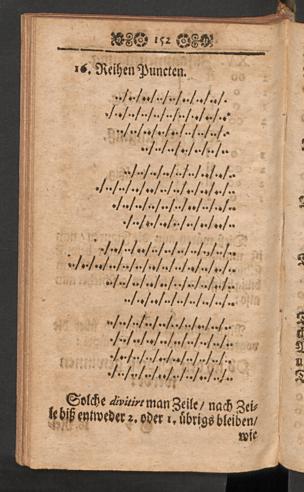 152
16. Reihen Puncten.
Solche divitirt man Zeile / nach Zei-
le biß entweder 2. oder 1. übrigs bleiben /
wie